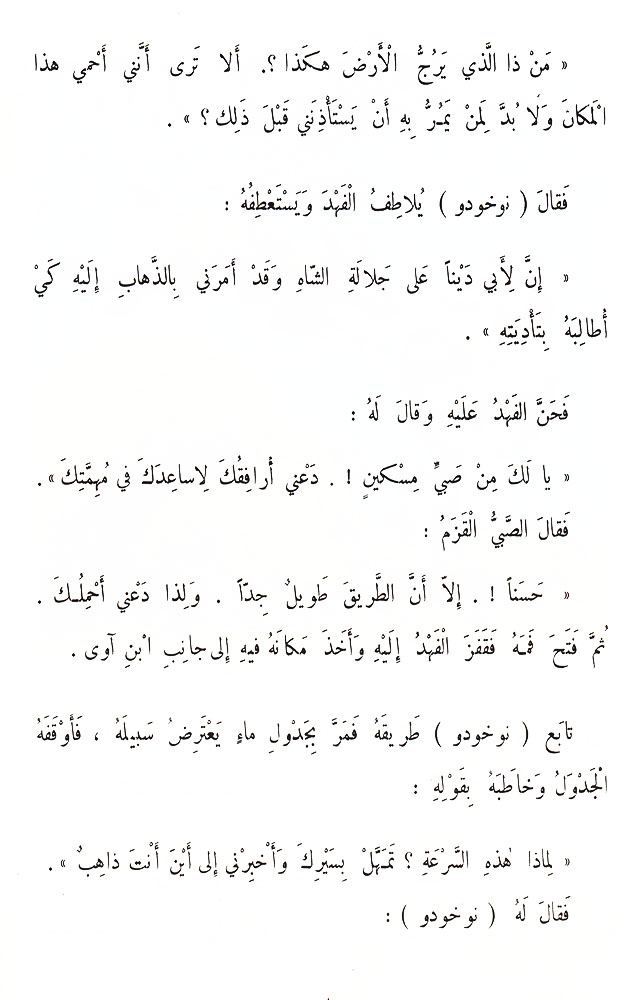 « مَنْ ذا الَّذي يَرُجُّ الْأَرْضَ هكَذا ؟. أَلا تَرى أَنَّني أَحْمي هذا
الْمَكانَ وَلَا بُدَّ لِمَنْ يَمُرُّ بِهِ أَنْ يَسْتَأْذِنَني قَبْلَ ذَلِك ؟ » .
فَقالَ ( نوخودو ) يُلاطِفُ الْفَهْدَ وَيَسْتَعْطِفُهُ :
« إِنَّ لِأَبي دَيْناً عَلى جَلالَةِ الشّاهِ وَقَدْ أَمَرَني بِالذَّهابِ إِلَيْهِ كَيْ
أُطالِبَهُ بِتَأْدِيَتِهِ » .
فَحَنَّ الفَهْدُ عَلَيْهِ وَقالَ لَهُ :
« يا لَكَ مِنْ صَبِيٍّ مِسْكينٍ ! . دَعْني أُرافِقُكَ لِاساعِدَكَ في مُهِمَّتِكَ ».
فَقالَ الصَّبيُّ الْقَزَمُ :
« حَسَناً ! . إِلاّ أَنَّ الطَّريقَ طَويلٌ جِدّاً . وَلِذا دَعْني أَحْمِلُـكَ .
ثُمَّ فَتَحَ فَمَـهُ فَقَفَزَ الْفَهْدُ إِلَيْهِ وَأَخَذَ مَكانَهُ فيهِ إِلى جانِبِ ابْنِ آوى .
تابَع ( نوخودو ) طَريقَهُ فَمَرَّ بِجَدْولِ ماءٍ يَعْتَرِضُ سَبيلَهُ ، فَأَوْقَفَهُ
الْجَدْوَلُ وَخاطَبَهُ بِقَوْلِهِ :
« لِماذا هٰذهِ السَّرْعَةِ ؟ تَمَهَّلْ بِسَيْرِكَ وَأَخْبِرْني إِلى أَيْنَ أَنْتَ ذاهِبٌ ».
فَقالَ لَهُ ( نوخودو ) :